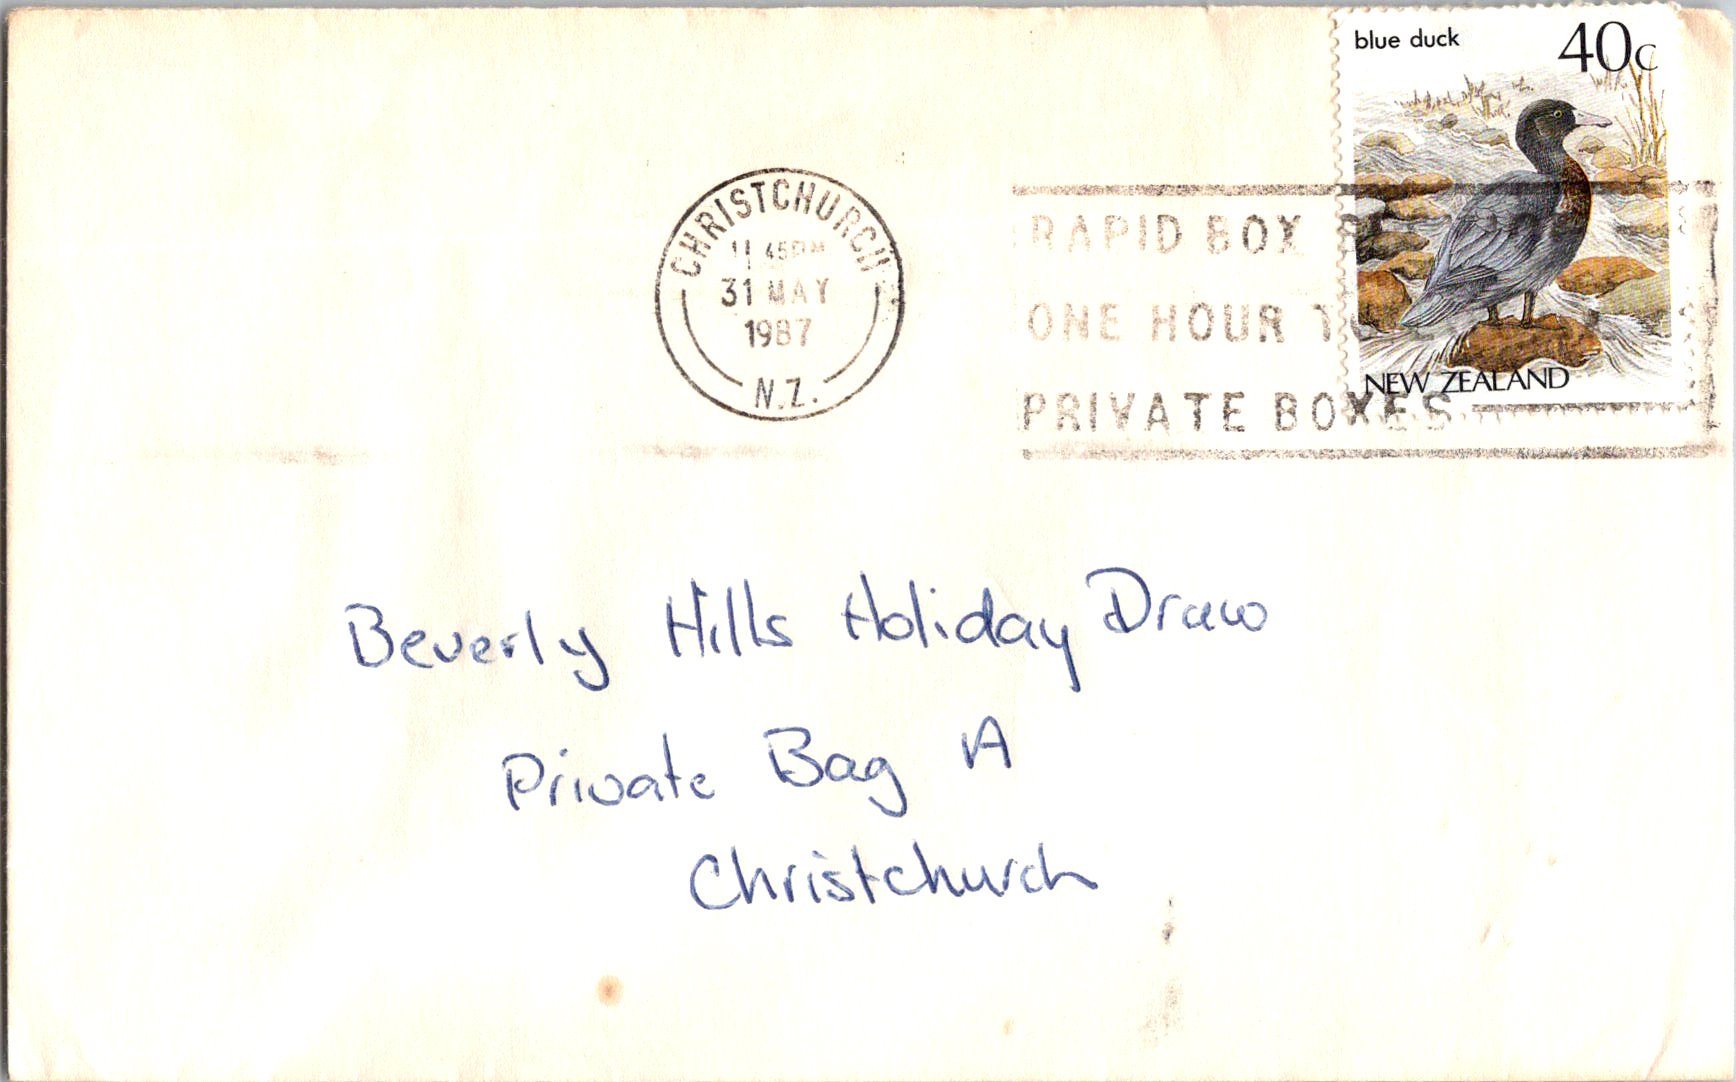 blue duck 40c
CHRISTCHURCH
11 45PM
31 MAY
1987
N.Z.
RAPID BOX
ONE HOUR
PRIVATE BOXES
NEW ZEALAND
Beverly Hills Holiday Draw
Private Bag A
Christchurch